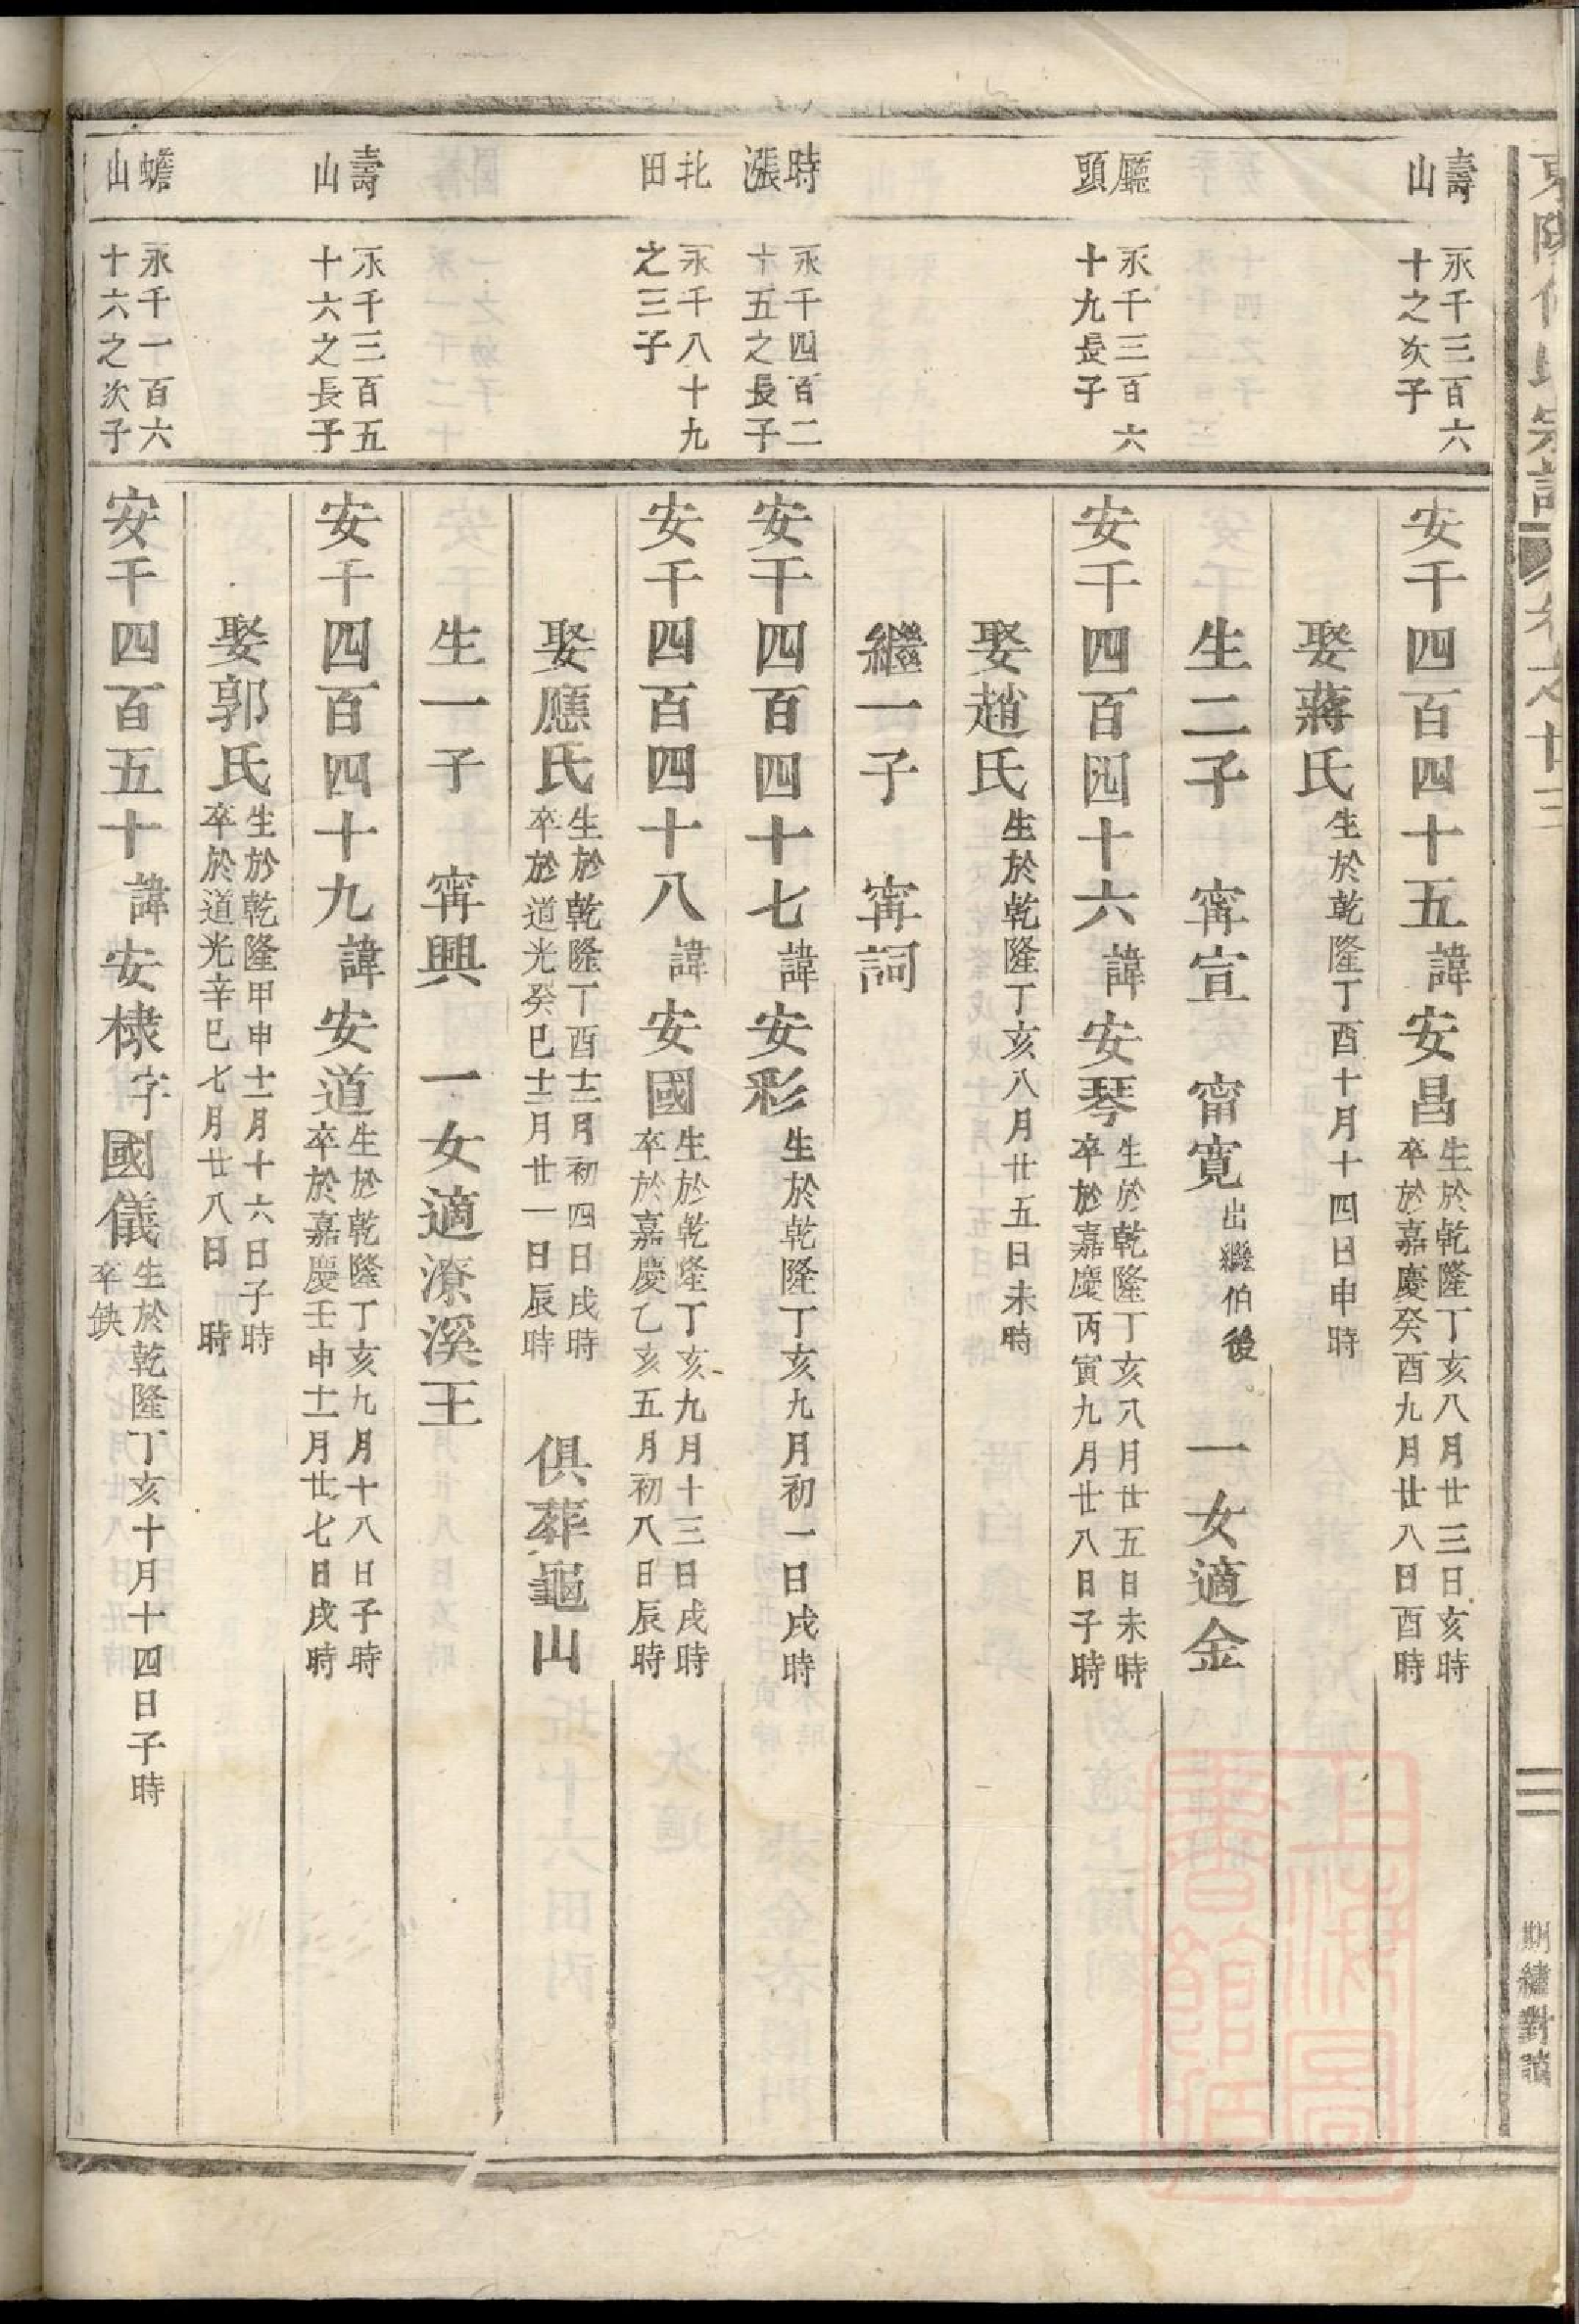 壽山
永千三百六十之次子
安千四百四十五諱安昌生於乾隆丁亥八月廿三日亥時卒於嘉慶癸酉九月廿八日酉時
娶蔣氏生於乾隆丁酉十月十四日申時
生二子 甯宣 甯寬出繼伯後 一女適金
廳頭
永千三百六十九長子
安千四百四十六諱安琴生於乾隆丁亥八月廿五日未時卒於嘉慶丙寅九月廿八日子時
娶趙氏生於乾隆丁亥八月廿五日未時
繼一子 甯詞
時漲
永千四百二十五之長子
安千四百四十七諱安彩生於乾隆丁亥九月初一日戌時
北田
永千八十九之三子
安千四百四十八諱安國生於乾隆丁亥九月十三日戌時卒於嘉慶乙亥五月初八日辰時
娶應氏生於乾隆丁酉十二月初四日戌時卒於道光癸巳十二月廿一日辰時 俱葬龜山
生一子 甯興 一女適潦溪王
壽山
永千三百五十六之長子
安千四百四十九諱安道生於乾隆丁亥九月十八日子時卒於嘉慶壬申十一月廿七日戌時
娶郭氏生於乾隆甲申十一月十六日子時卒於道光辛巳七月廿八日 時
蟾山
永千一百六十六之次子
安千四百五十諱安棣字國儀生於乾隆丁亥十月十四日子時卒缺
卷之廿三
三
期繡對讀
上海圖書館藏